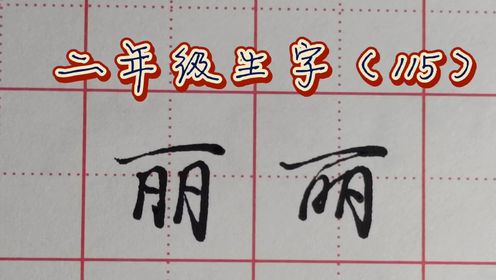 二年级生字（115）
丽 丽